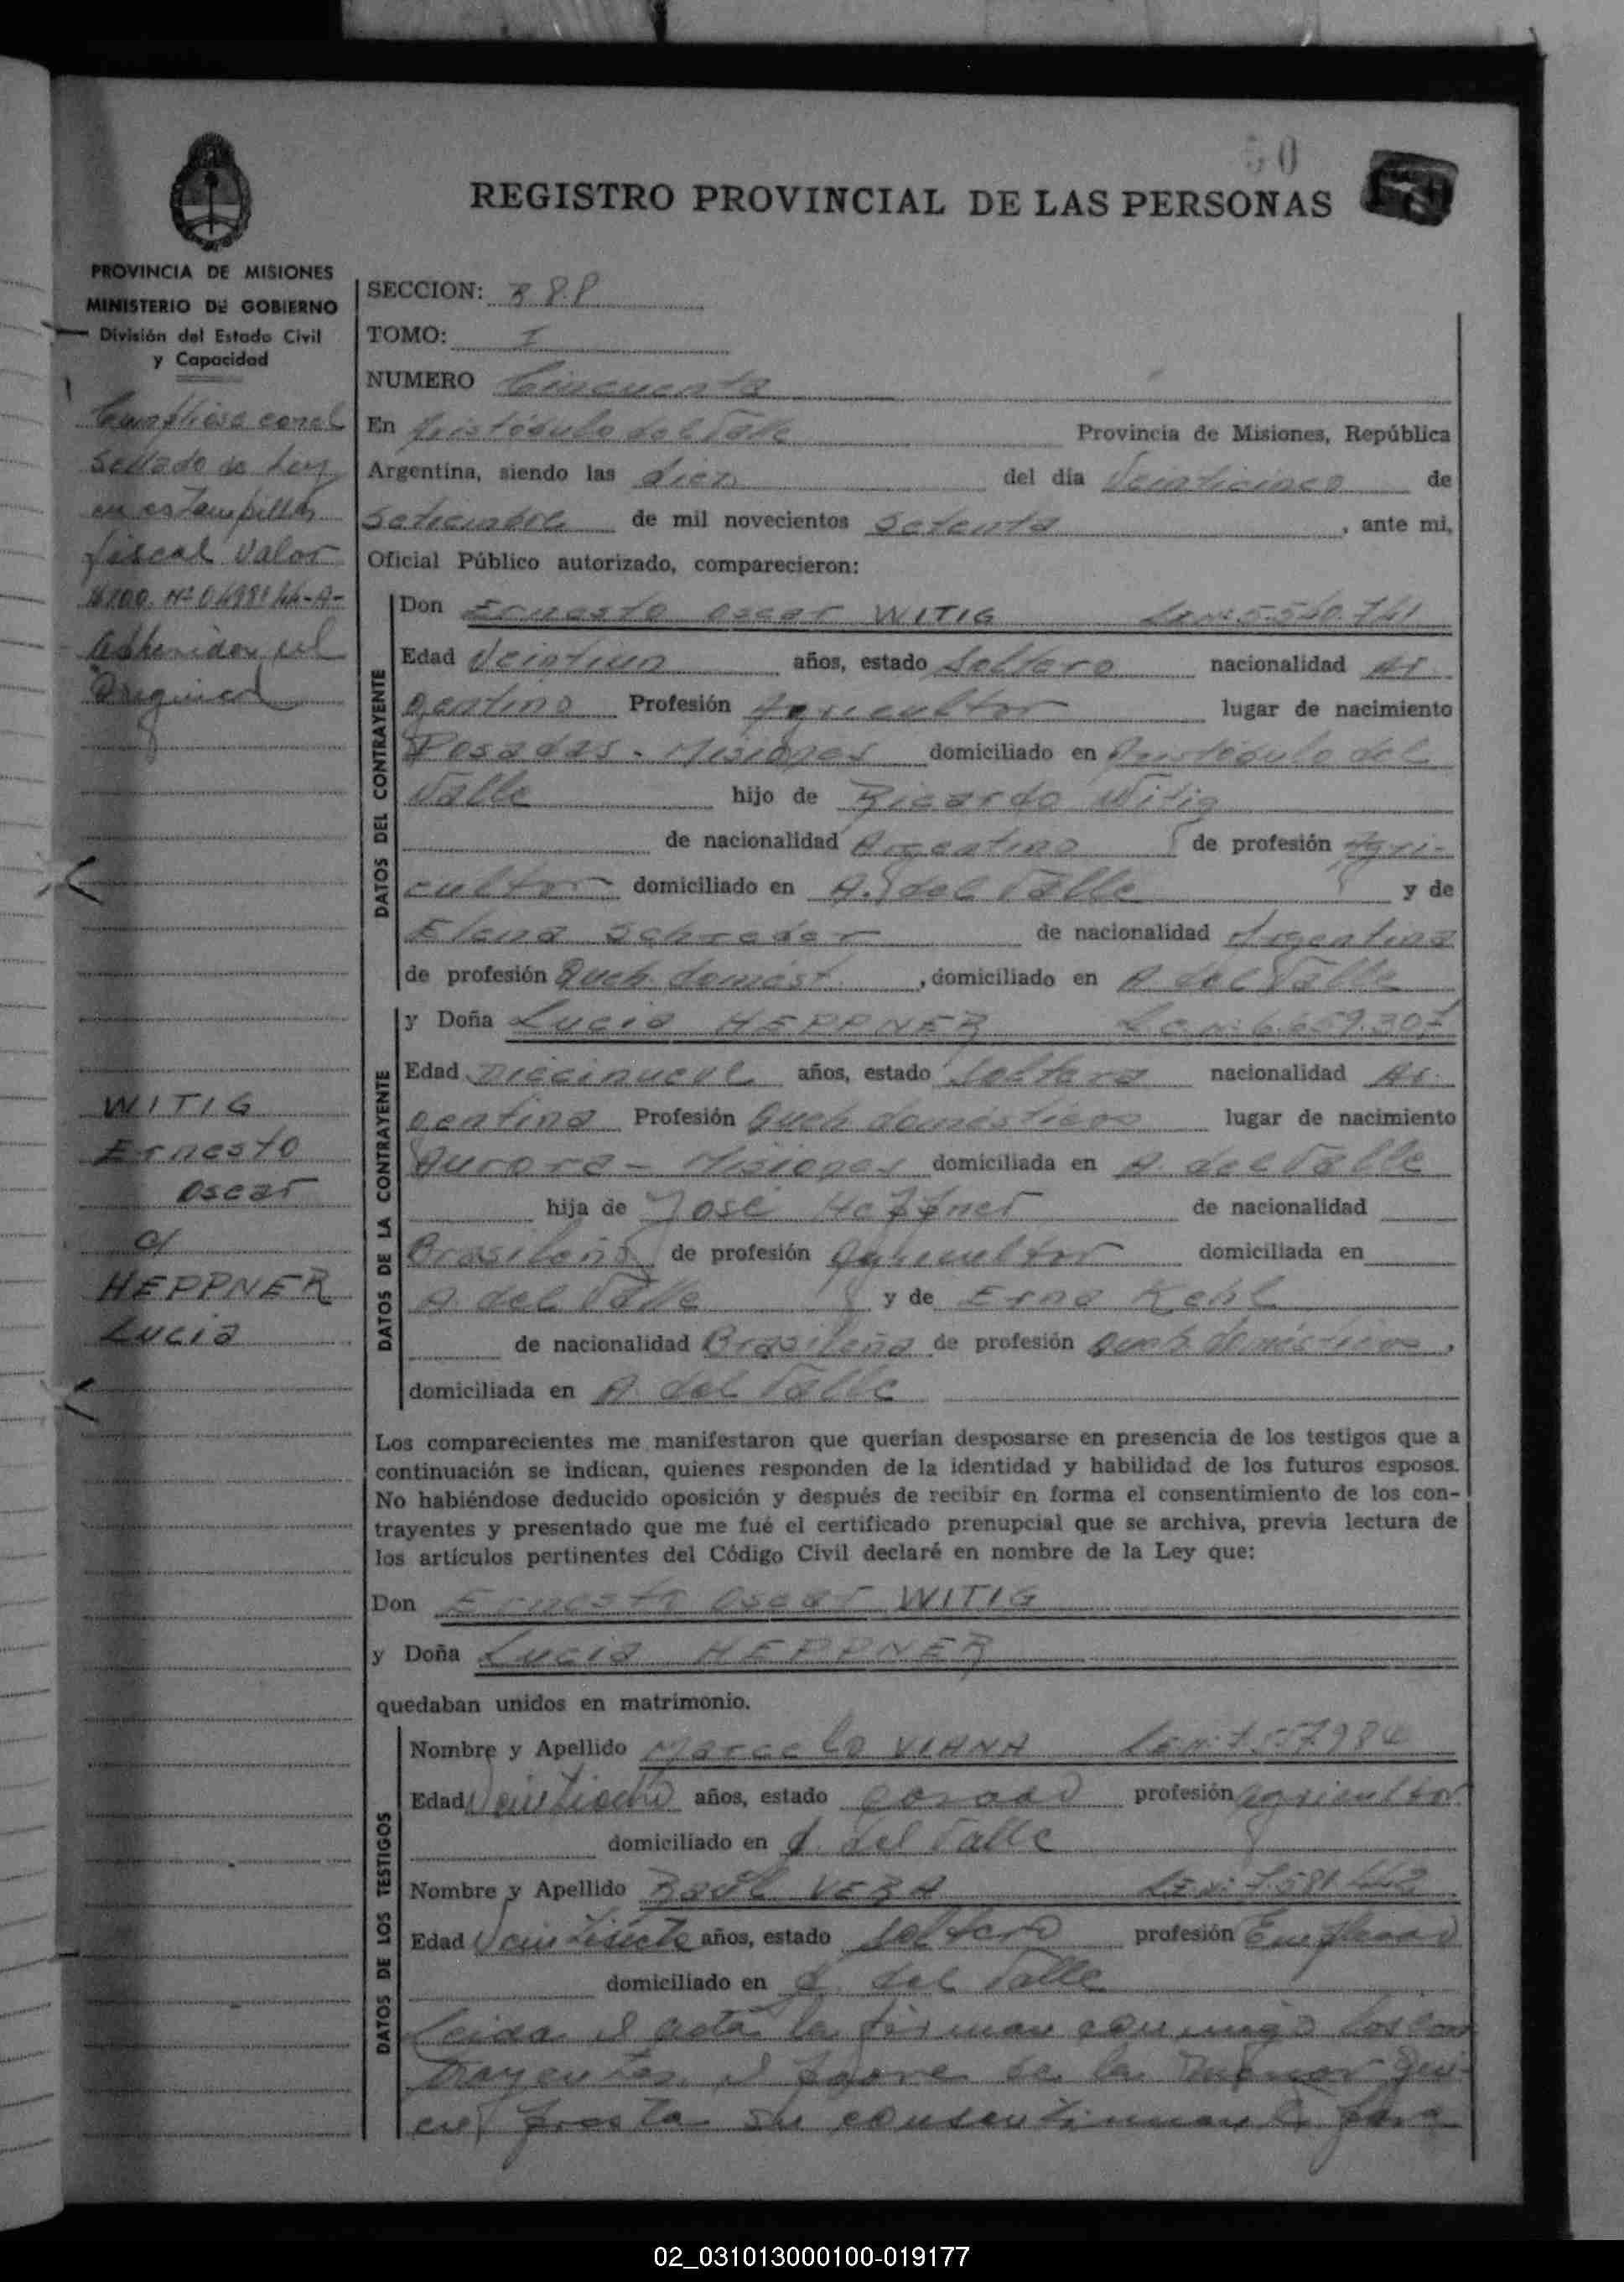 50
REGISTRO PROVINCIAL DE LAS PERSONAS
PROVINCIA DE MISIONES
MINISTERIO DE GOBIERNO
División del Estado Civil
y Capacidad
Cumpliose con el
Sellado de Ley
en estampilla
fiscal valor
Nº 0498144-A-
adherida en el
Original
WITIG
Ernesto
Oscar
c/
HEPPNER
Lucia
SECCION: 388
TOMO: I
NUMERO Cincuenta
En Aristóbulo del Valle Provincia de Misiones, República
Argentina, siendo las diez del día Veinticinco de
Setiembre de mil novecientos Setenta, ante mi,
Oficial Público autorizado, comparecieron:
DATOS DEL CONTRAYENTE
Don Ernesto Oscar WITIG L.E.Nº 5.540.741
Edad Veintiun años, estado Soltero nacionalidad Ar
gentino Profesión Agricultor lugar de nacimiento
Posadas - Misiones domiciliado en Aristóbulo del
Valle hijo de Ricardo Witig
de nacionalidad Argentino de profesión Agri-
cultor domiciliado en A. del Valle y de
Elena Schreder de nacionalidad Argentina
de profesión Queh. domést. , domiciliado en A. del Valle
DATOS DE LA CONTRAYENTE
y Doña Lucia HEPPNER L.C.Nº 6.659.307
Edad Diecinueve años, estado Soltera nacionalidad Ar
gentina Profesión Queh domésticos lugar de nacimiento
Aurora - Misiones domiciliada en A. del Valle
hija de José Heppner de nacionalidad
Brasileño de profesión Agricultor domiciliada en
A. del Valle y de Erna Kehl
de nacionalidad Brasileña de profesión Queh domésticos,
domiciliada en A. del Valle
Los comparecientes me manifestaron que querían desposarse en presencia de los testigos que a
continuación se indican, quienes responden de la identidad y habilidad de los futuros esposos.
No habiéndose deducido oposición y después de recibir en forma el consentimiento de los con-
trayentes y presentado que me fué el certificado prenupcial que se archiva, previa lectura de
los artículos pertinentes del Código Civil declaré en nombre de la Ley que:
Don Ernesto Oscar WITIG
y Doña Lucia HEPPNER
quedaban unidos en matrimonio.
DATOS DE LOS TESTIGOS
Nombre y Apellido Marcelo VIANA L.E.Nº 7.557.984
Edad Veintiocho años, estado casado profesión agricultor
domiciliado en A. del Valle
Nombre y Apellido Raúl VERA L.E.Nº 7.581.442
Edad Veintisiete años, estado soltero profesión Empleado
domiciliado en A. del Valle
Leida el acta la firman conmigo los con
trayentes, el padre de la menor qui-
en presta su consentimiento para
02_031013000100-019177